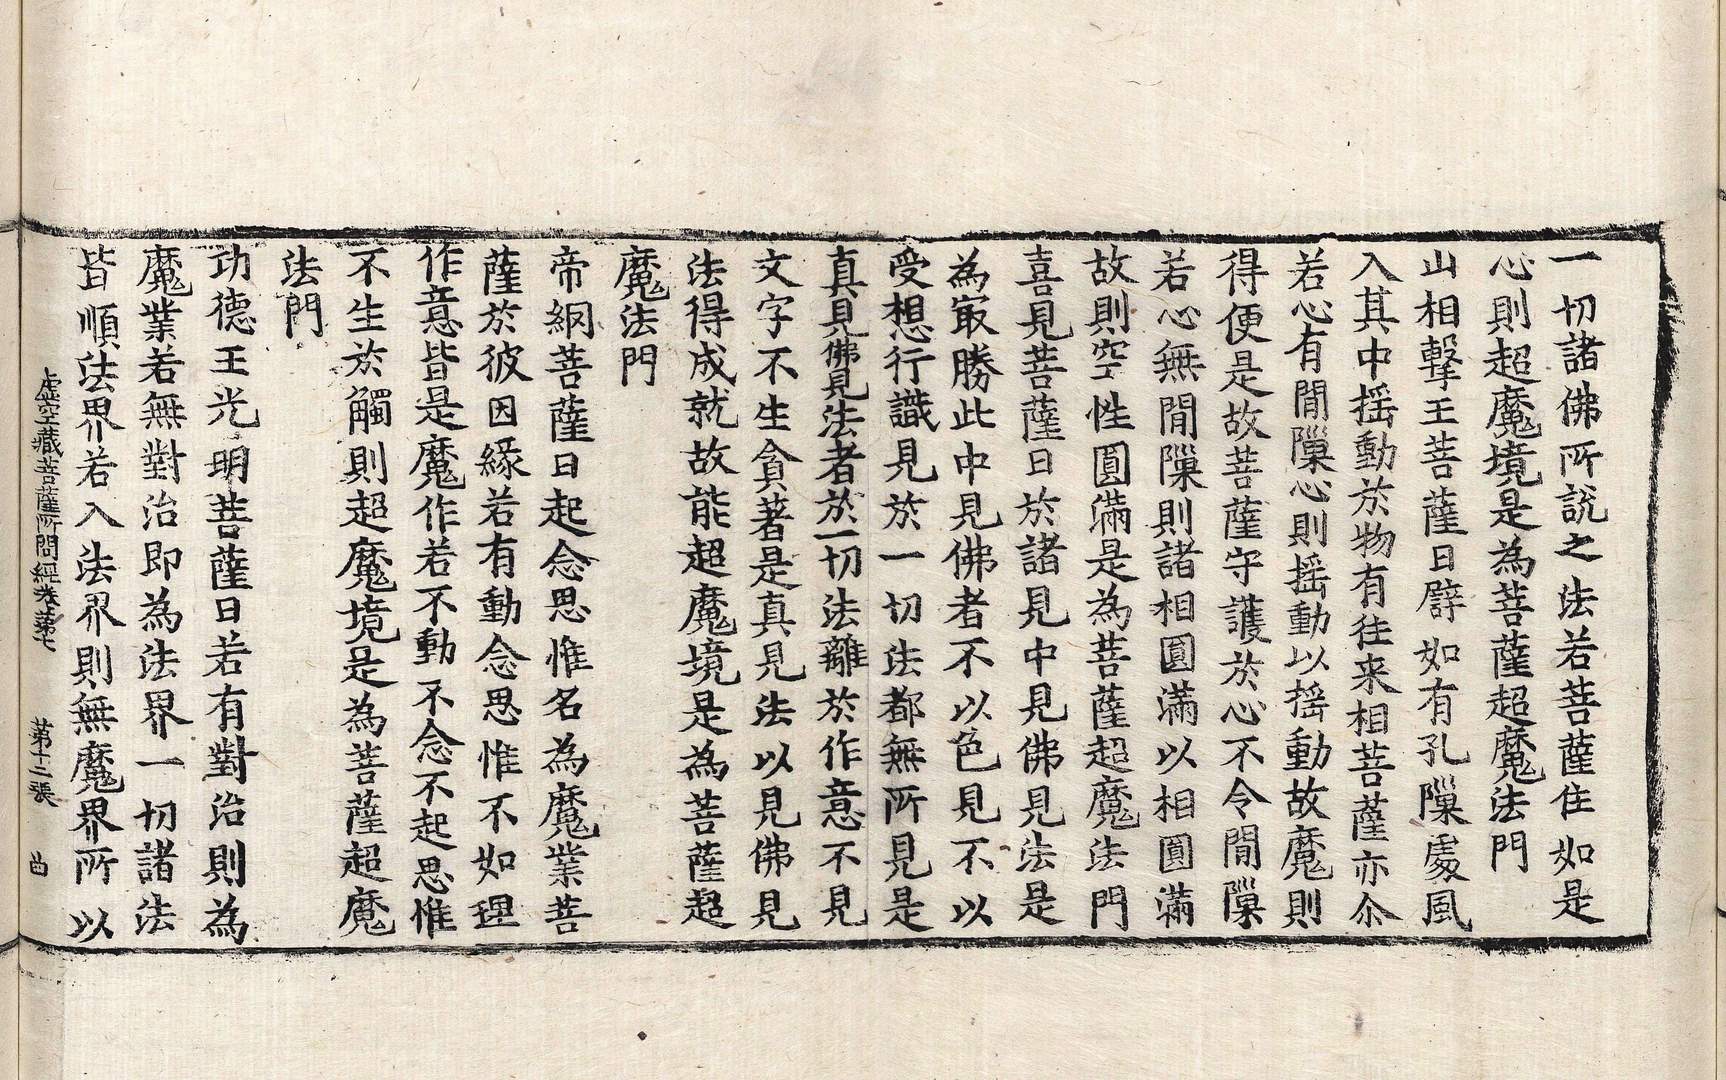 一切諸佛所説之法若菩薩住如是
心則超魔境是為菩薩超魔法門
山相擊王菩薩曰譬如有孔隟處風
入其中揺動於物有往来相菩薩亦尒
若心有間隟心則揺動以揺動故魔則
得便是故菩薩守護於心不令間隟
若心無間隟則諸相圓滿以相圓滿
故則空性圓滿是為菩薩超魔法門
喜見菩薩曰於諸見中見佛見法是
為㝡勝此中見佛者不以色見不以
受想行識見於一切法都無所見是
真見佛見法者於一切法離於作意不見
文字不生貪著是真見法以見佛見
法得成就故能超魔境是為菩薩超
魔法門
帝網菩薩曰起念思惟名為魔業菩
薩於彼因緣若有動念思惟不如理
作意皆是魔作若不動不念不起思惟
不生於觸則超魔境是為菩薩超魔
法門
功德王光明菩薩曰若有對治則為
魔業若無對治即為法界一切諸法
皆順法界若入法界則無魔界所以
虚空藏菩薩所問經卷苐七 苐十二張 曲